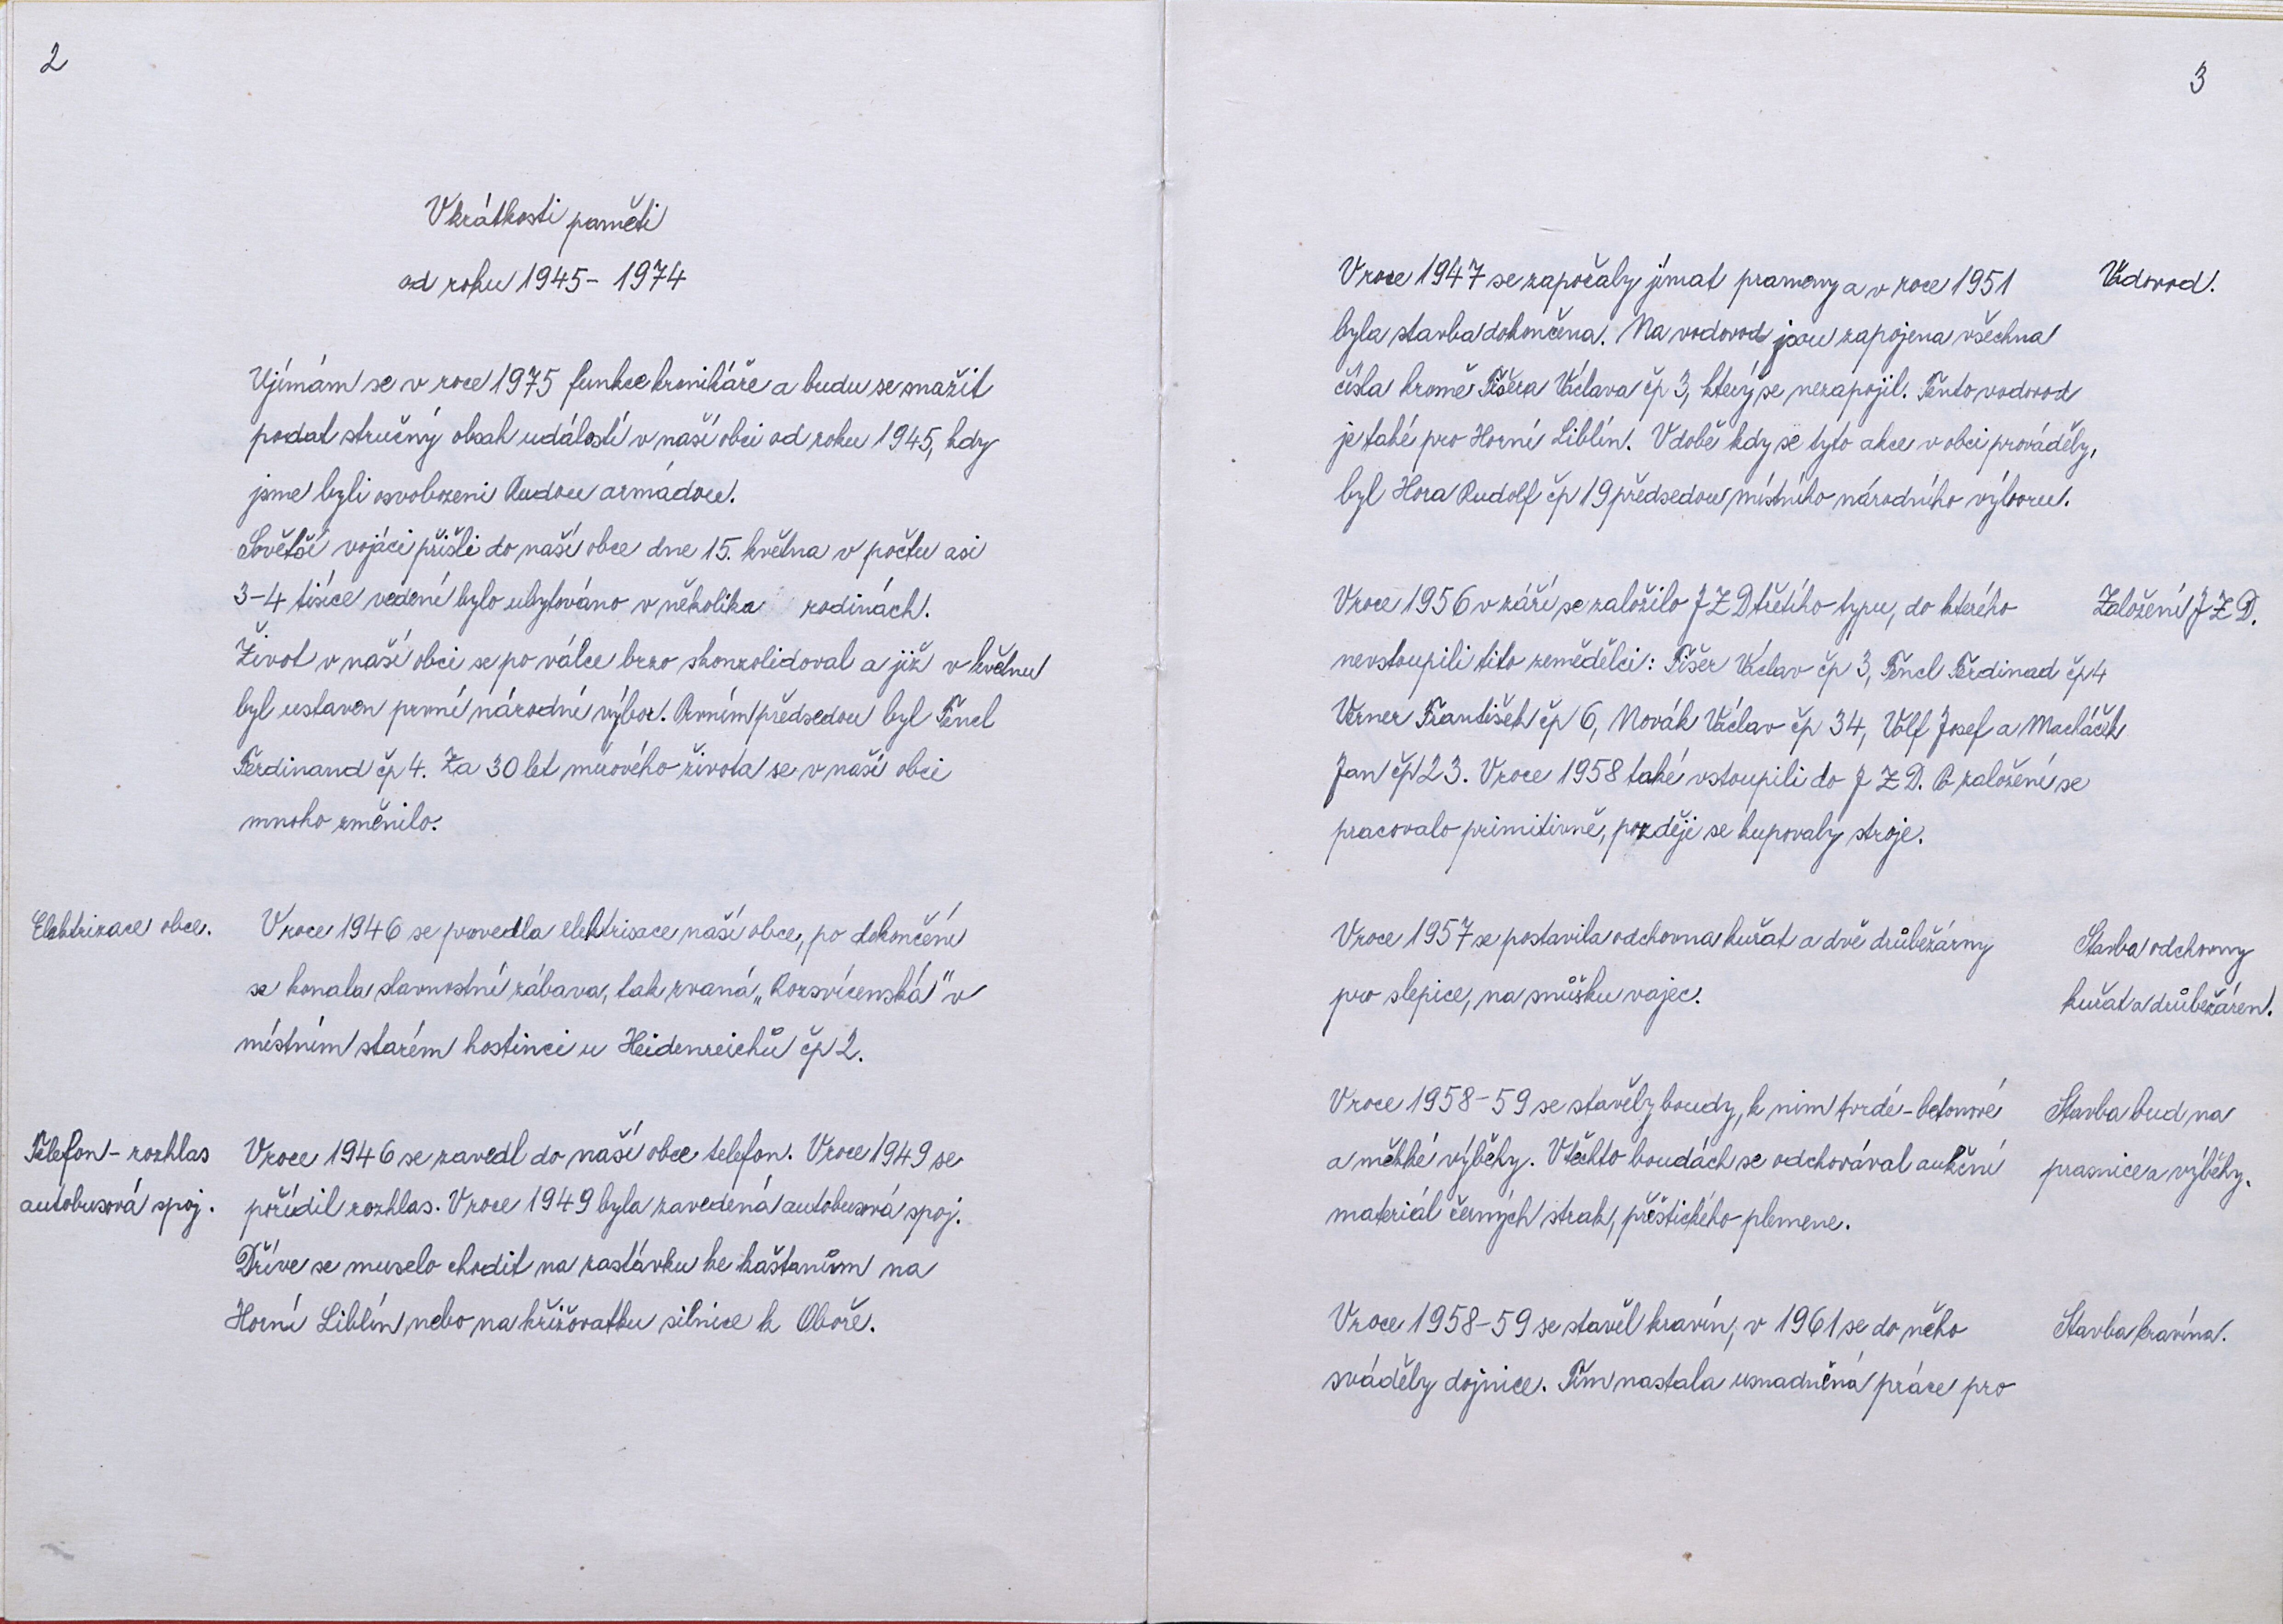 2
V krátkosti paměti
od roku 1945 - 1974
Ujímám se v roce 1975 funkce kronikáře a budu se snažit
podat stručný obsah událostí v naší obci od roku 1945, kdy
jsme byli osvobozeni Rudou armádou.
Sovětší vojáci přišli do naší obce dne 15. května v počtu asi
3-4 tisíce vedení bylo ubytováno v několika rodinách.
Život v naší obci se po válce brzo skonzolidoval a již v květnu
byl ustaven první národní výbor. Prvním předsedou byl Téncl
Ferdinand čp 4. Za 30 let mírového života se v naší obci
mnoho změnilo.
Elektrizace obce.
V roce 1946 se provedla elektrisace naší obce, po dokončení
se konala slavnostní zábava, tak zvaná „Rozsvícenská" v
místním starém hostinci u Heidenreichů čp 2.
Telefon - rozhlas
autobusová spoj.
V roce 1946 se zavedl do naší obce telefon. V roce 1949 se
pořídil rozhlas. V roce 1949 byla zavedená autobusová spoj.
Dříve se muselo chodit na zastávku ke kaštanům na
Horní Liblín nebo na křižovatku silnice k Oboře.
3
V roce 1947 se započaly jímat prameny a v roce 1951
byla stavba dokončena. Na vodovod jsou zapojena všechna
čísla kromě Fišera Václava čp 3, který se nezapojil. Tento vodovod
je také pro Horní Liblín. V době kdy se tyto akce v obci prováděly,
byl Hora Rudolf čp 19 předsedou místního národního výboru.
Vodovod.
V roce 1956 v září se založilo J Z D třetího typu, do kterého
nevstoupili tito zemědělci: Fišer Václav čp 3, Téncl Ferdinad čp 4
Verner František čp 6, Novák Václav čp 34, Volf Josef a Macháček
Jan čp 23. V roce 1958 také vstoupili do J Z D. Po založení se
pracovalo primitivně, později se kupovaly stroje.
Založení J Z D.
V roce 1957 se postavila odchovna kuřat a dvě drůbežárny
pro slepice, na snůšku vajec.
Stavba odchovny
kuřat a drůbežáren.
V roce 1958-59 se stavěly boudy, k nim tvrdé - betonové
a měkké výběhy. V těchto boudách se odchovával aukční
materiál černých strak, přěštického plemene.
Stavba bud na
prasnice a výběhy.
V roce 1958-59 se stavěl kravín, v 1961 se do něho
sváděly dojnice. Tím nastala usnadněná práce pro
Stavba kravína.